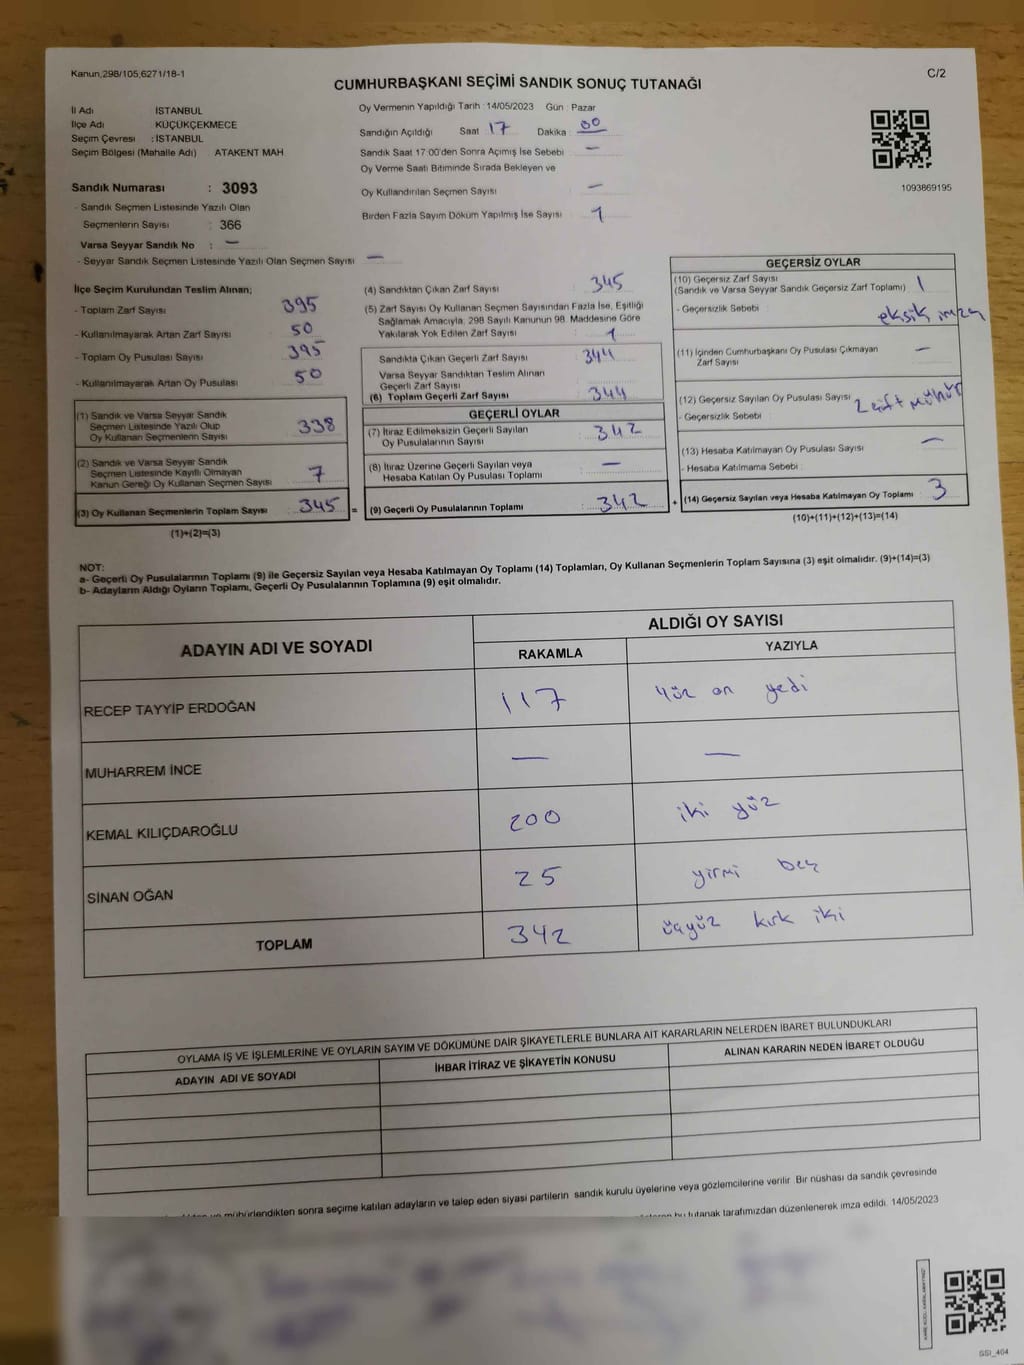 Kanun,298/105,6271/18-1
C/2
CUMHURBAŞKANI SEÇİMİ SANDIK SONUÇ TUTANAĞI
İl Adı İSTANBUL
İlçe Adı KÜÇÜKÇEKMECE
Seçim Çevresi : İSTANBUL
Seçim Bölgesi (Mahalle Adı) ATAKENT MAH.
Oy Vermenin Yapıldığı Tarih : 14/05/2023 Gün : Pazar
Sandığın Açıldığı Saat 17 Dakika : 00
Sandık Saat 17:00'den Sonra Açımış İse Sebebi : —
Oy Verme Saati Bitiminde Sırada Bekleyen ve
Oy Kullandırılan Seçmen Sayısı —
Birden Fazla Sayım Döküm Yapılmış İse Sayısı 1
1093869195
Sandık Numarası : 3093
- Sandık Seçmen Listesinde Yazılı Olan
Seçmenlerin Sayısı : 366
Varsa Seyyar Sandık No : —
- Seyyar Sandık Seçmen Listesinde Yazılı Olan Seçmen Sayısı —
İlçe Seçim Kurulundan Teslim Alınan;
- Toplam Zarf Sayısı 395
- Kullanılmayarak Artan Zarf Sayısı 50
- Toplam Oy Pusulası Sayısı 395
- Kullanılmayarak Artan Oy Pusulası 50
(1) Sandık ve Varsa Seyyar Sandık
Seçmen Listesinde Yazılı Olup
Oy Kullanan Seçmenlerin Sayısı 338
(2) Sandık ve Varsa Seyyar Sandık
Seçmen Listesinde Kayıtlı Olmayan
Kanun Gereği Oy Kullanan Seçmen Sayısı 7
(3) Oy Kullanan Seçmenlerin Toplam Sayısı 345 =
(1)+(2)=(3)
(4) Sandıktan Çıkan Zarf Sayısı 345
(5) Zarf Sayısı Oy Kullanan Seçmen Sayısından Fazla İse, Eşitliği
Sağlamak Amacıyla, 298 Sayılı Kanunun 98. Maddesine Göre
Yakılarak Yok Edilen Zarf Sayısı 1
Sandıkta Çıkan Geçerli Zarf Sayısı 344
Varsa Seyyar Sandıktan Teslim Alınan
Geçerli Zarf Sayısı
(6) Toplam Geçerli Zarf Sayısı 344
GEÇERLİ OYLAR
(7) İtiraz Edilmeksizin Geçerli Sayılan
Oy Pusulalarının Sayısı 342
(8) İtiraz Üzerine Geçerli Sayılan veya
Hesaba Katılan Oy Pusulası Toplamı —
(9) Geçerli Oy Pusulalarının Toplamı : 342 +
GEÇERSİZ OYLAR
(10) Geçersiz Zarf Sayısı
(Sandık ve Varsa Seyyar Sandık Geçersiz Zarf Toplamı) 1
- Geçersizlik Sebebi : eksik imza
(11) İçinden Cumhurbaşkanı Oy Pusulası Çıkmayan
Zarf Sayısı —
(12) Geçersiz Sayılan Oy Pusulası Sayısı 2 çift mühür
- Geçersizlik Sebebi
(13) Hesaba Katılmayan Oy Pusulası Sayısı —
- Hesaba Katılmama Sebebi :
(14) Geçersiz Sayılan veya Hesaba Katılmayan Oy Toplamı 3
(10)+(11)+(12)+(13)=(14)
NOT:
a- Geçerli Oy Pusulalarının Toplamı (9) ile Geçersiz Sayılan veya Hesaba Katılmayan Oy Toplamı (14) Toplamları, Oy Kullanan Seçmenlerin Toplam Sayısına (3) eşit olmalıdır. (9)+(14)=(3)
b- Adayların Aldığı Oyların Toplamı, Geçerli Oy Pusulalarının Toplamına (9) eşit olmalıdır.
ADAYIN ADI VE SOYADI ALDIĞI OY SAYISI
RAKAMLA YAZIYLA
RECEP TAYYİP ERDOĞAN 117 yüz on yedi
MUHARREM İNCE — —
KEMAL KILIÇDAROĞLU 200 iki yüz
SİNAN OĞAN 25 yirmi beş
TOPLAM 342 üçyüz kırk iki
OYLAMA İŞ VE İŞLEMLERİNE VE OYLARIN SAYIM VE DÖKÜMÜNE DAİR ŞİKAYETLERLE BUNLARA AİT KARARLARIN NELERDEN İBARET BULUNDUKLARI
ADAYIN ADI VE SOYADI İHBAR İTİRAZ VE ŞİKAYETİN KONUSU ALINAN KARARIN NEDEN İBARET OLDUĞU
mühürlendikten sonra seçime katılan adayların ve talep eden siyasi partilerin sandık kurulu üyelerine veya gözlemcilerine verilir. Bir nüshası da sandık çevresinde
bu tutanak tarafımızdan düzenlenerek imza edildi. 14/05/2023
SSI_404